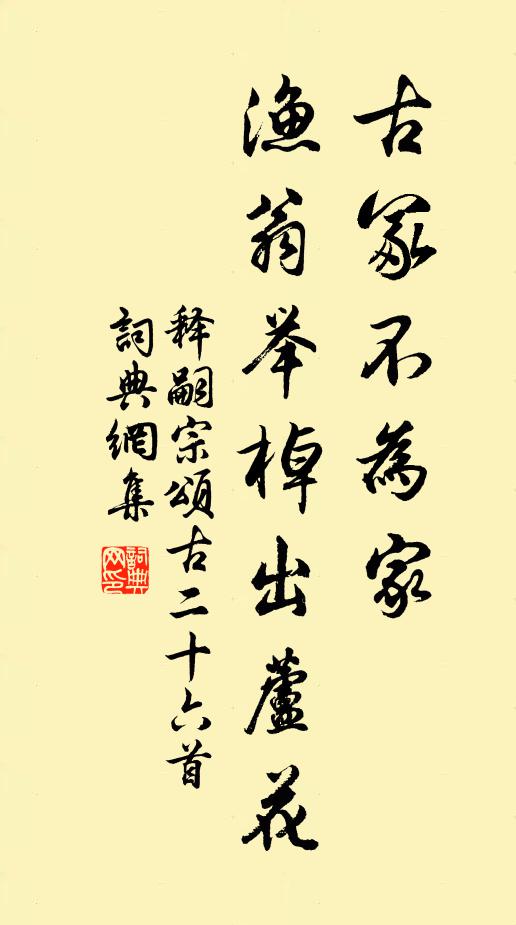 古冢不為家
漁翁举棹出蘆花
释嗣宗頌古二十六首
詞典網集
詞典网印